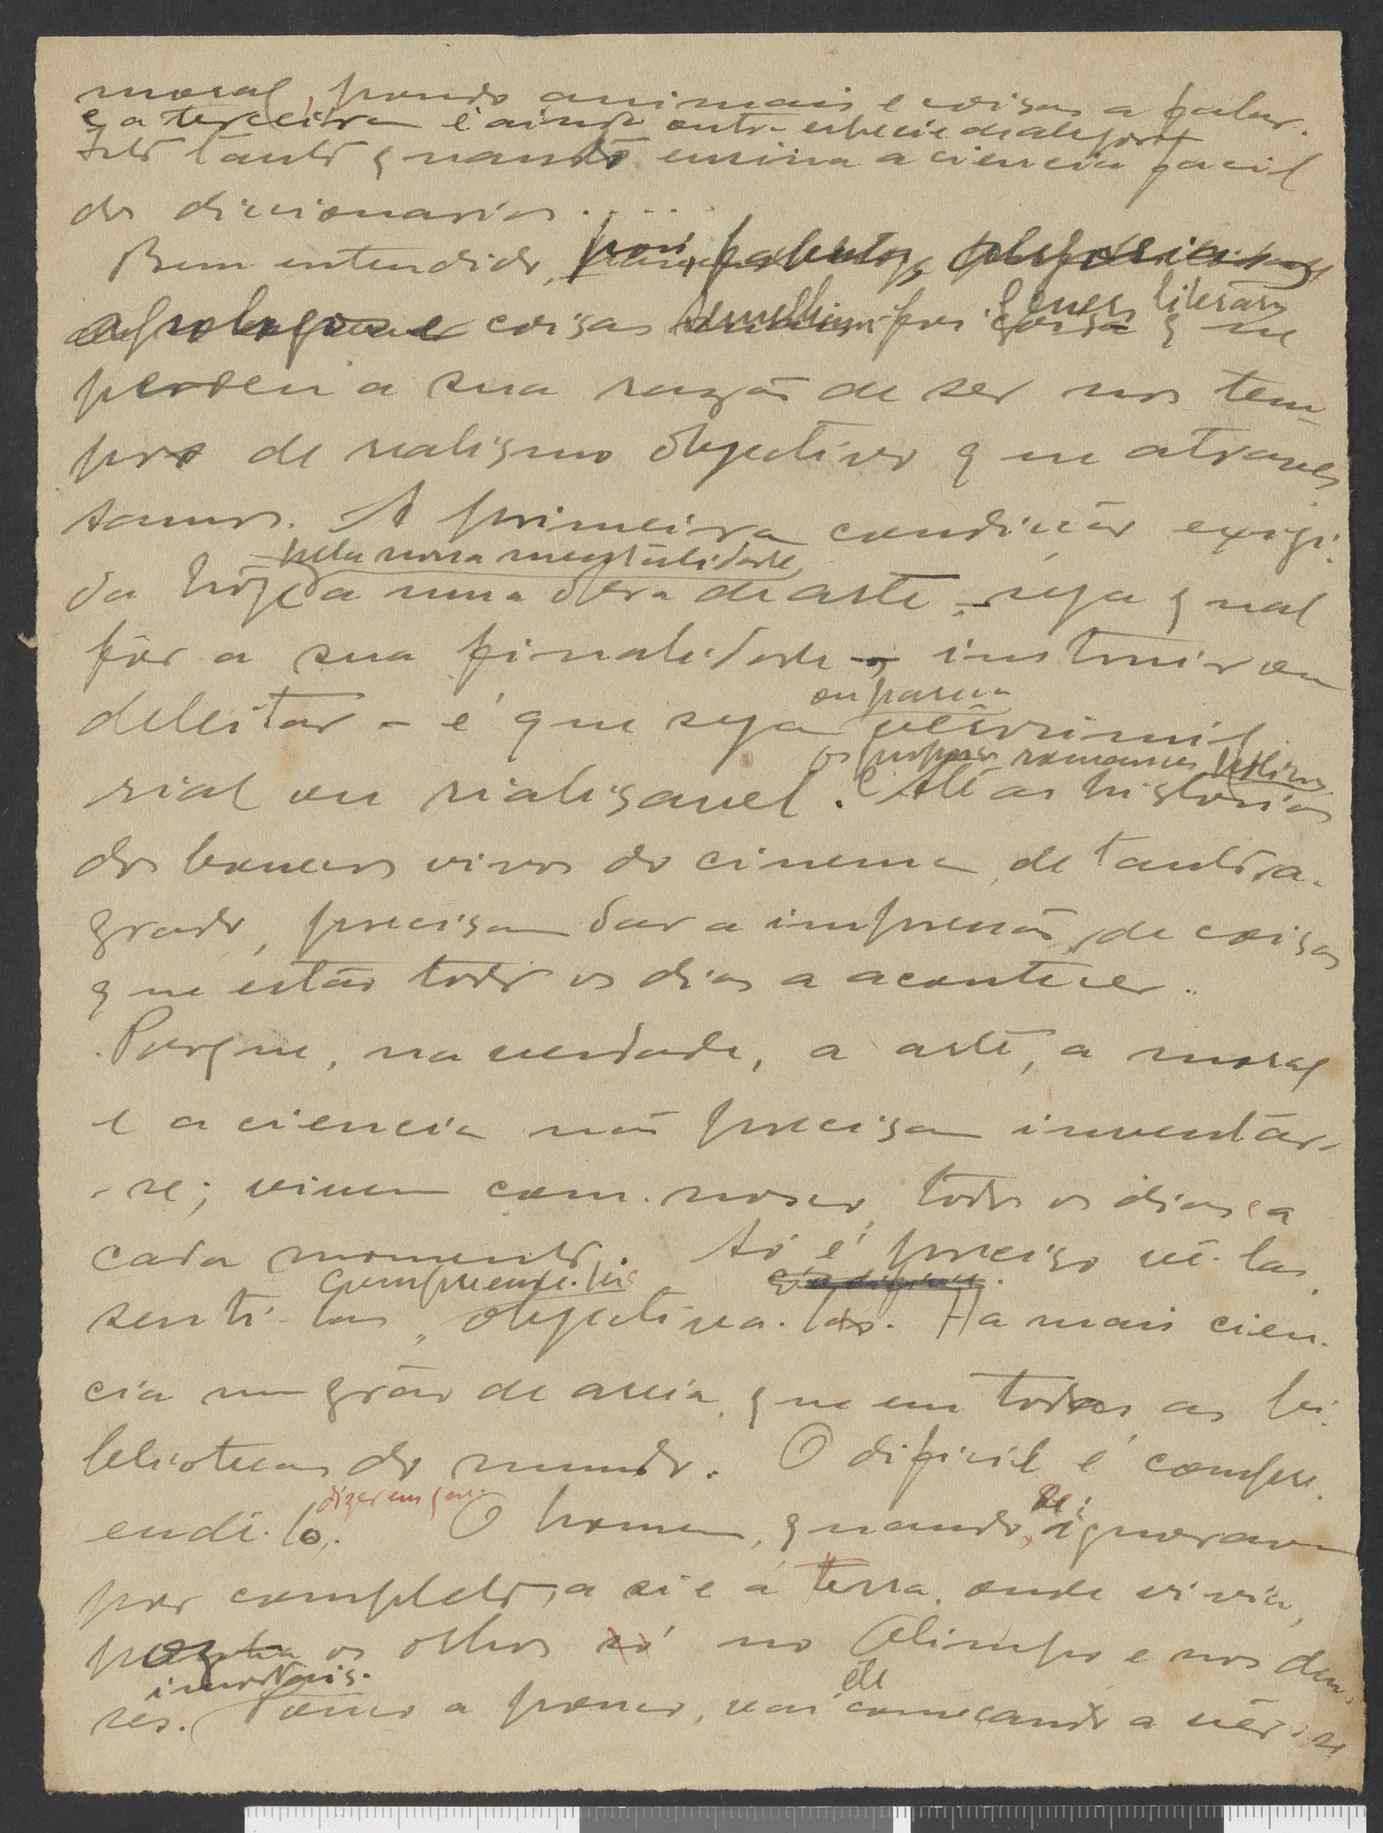 moral, pondo animais e coisas a falar.
e a terceira é ainda outra especie de alegoria
tanto quando ensina a ciencia facil
dos diccionarios.....
Bem entendido, pois
coisas por generos literarios que
perdeu a sua razão de ser nos tem-
pos de realismo objectivo que atraves-
samos. A primeira condição exigi-
pela nossa mentalidade
da hoje a uma obra de arte – seja qual
fôr a sua finalidade – instruir ou
ou pareça
deleitar – é que seja verosimil
os proprios romances
rial ou rialisavel. E até as historias
dos bonecos vivos do cinema, de tanto a-
grado, precisam dar a impressão de coisas
que estão todos os dias a acontecer..
Porque, na verdade, a arte, a moral
e a ciencia não precisam inventar-
-se; vivem comnosco, todos os dias e a
cada momento. Só é preciso vê-las,
compreende-las
senti-las, objectiva-las. Ha mais cien-
cia num grão de areia, que em todas as bi-
bliotecas do mundo. O dificil é compre-
ende-lo. O homem, quando se ignorava
por completo, a si e á terra, onde vivia,
os olhos só no Olimpo e nos deu-
imortais.
ses. Pouco a pouco, vai ele começando a vêr-se